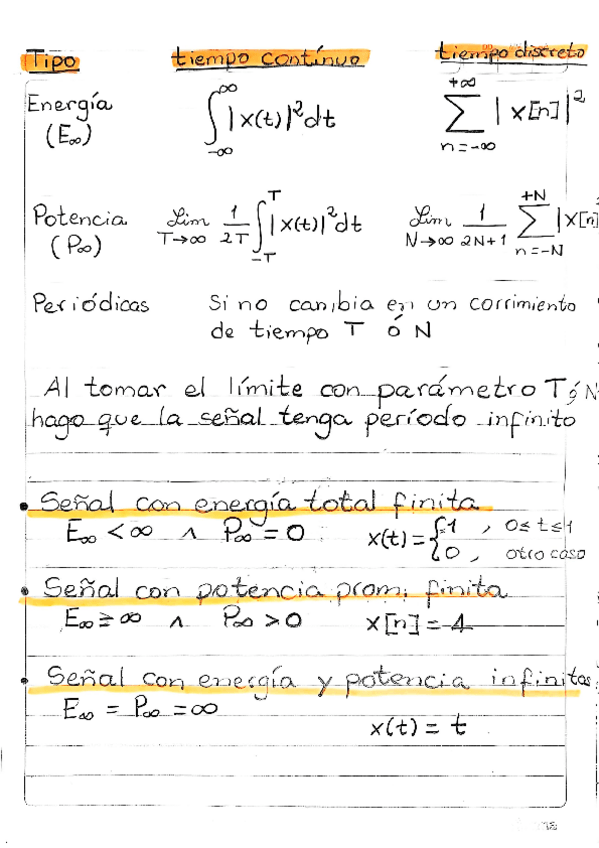 Tipo tiempo contínuo tiempo discreto
Energía (E∞) ∫_{-∞}^{∞} |x(t)|² dt ∑_{n=-∞}^{+∞} |x[n]|²
Potencia (P∞) Lim_{T→∞} 1/2T ∫_{-T}^{T} |x(t)|² dt Lim_{N→∞} 1/2N+1 ∑_{n=-N}^{+N} |x[n]
Periódicas Si no cambia en un corrimiento
de tiempo T ó N
Al tomar el límite con parámetro T ó N
hago que la señal tenga período infinito
• Señal con energía total finita
E∞ < ∞ ∧ P∞ = 0 x(t) = {1 , 0 ≤ t ≤ 1
0 , otro caso
• Señal con potencia prom. finita
E∞ = ∞ ∧ P∞ > 0 x[n] = 4
• Señal con energía y potencia infinitas
E∞ = P∞ = ∞
x(t) = t